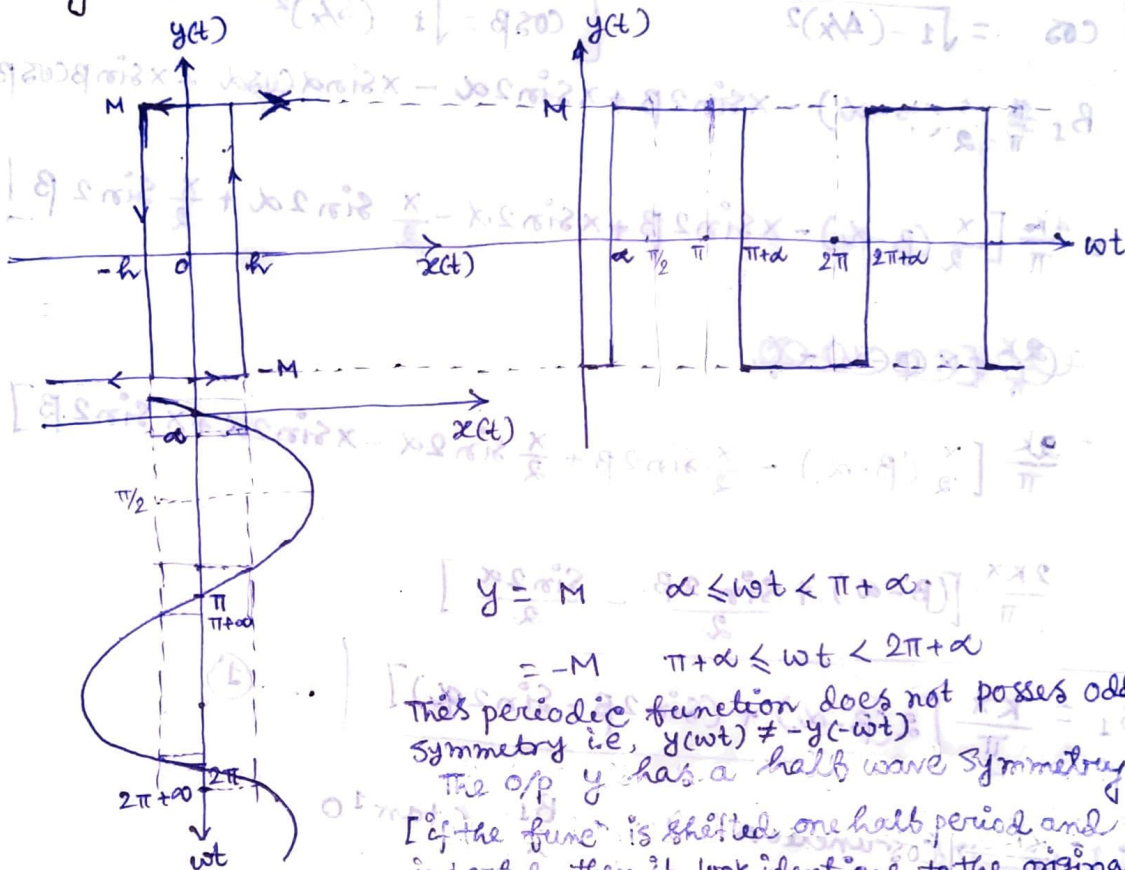 y(t)
M
-h
0
h
x(t)
-M
y(t)
M
α
π/2
π
π+α
2π
2π+α
ωt
x(t)
α
π/2
π
π+α
2π
2π+∞
ωt
y = M α ≤ ωt < π+α
= -M π+α ≤ ωt < 2π+α
This periodic function does not posses odd
symmetry i.e, y(ωt) ≠ -y(-ωt)
The o/p y has a half wave symmetry
[if the funcⁿ is shifted one half period and
then it look identical to the